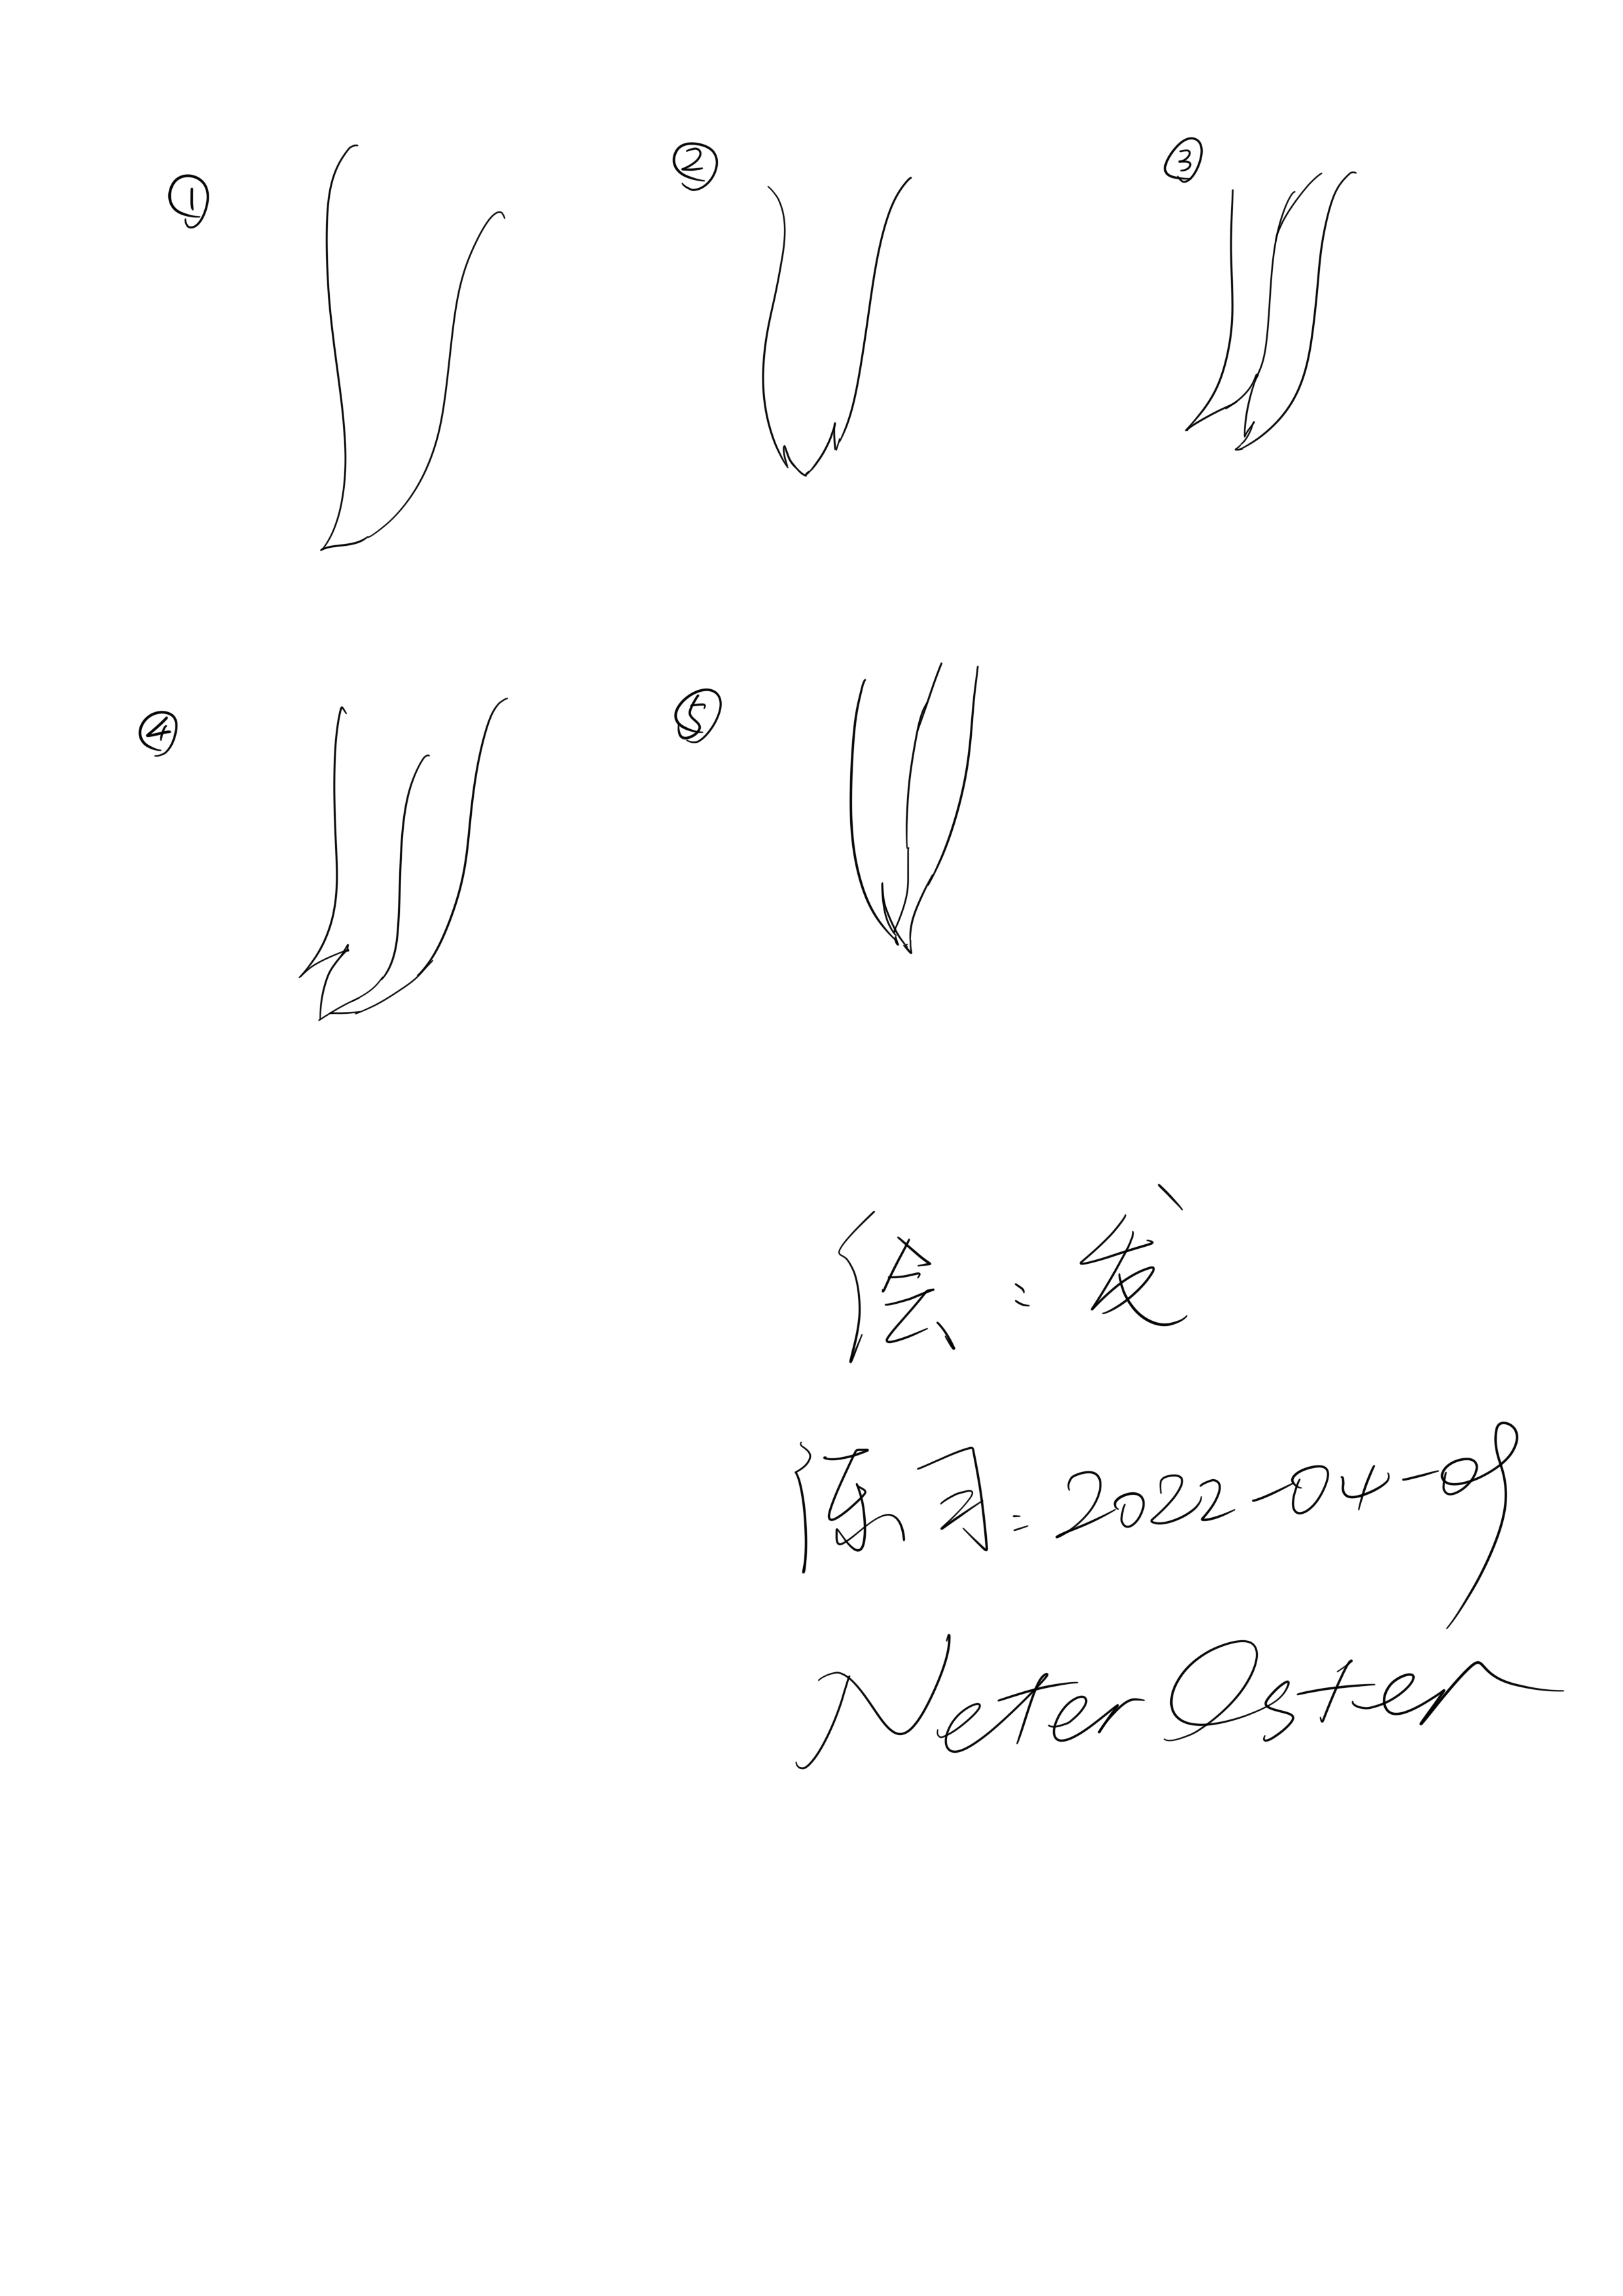 ① ② ③
④ ⑤
绘:发
练习:2022-04-08
Neter Osten